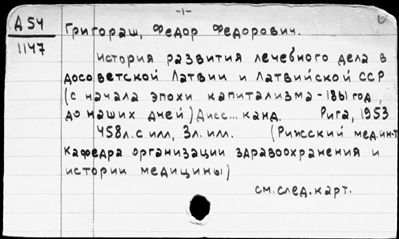 -1-
А 54
1147
Григораш, Федор Федорович.
История развития лечебного дела в
досоветской Латвии и Латвийской ССР
(с начала эпохи капитализма - 1861 год,
до наших дней) Дисс... канд. Рига, 1953
458л. с илл, 3л. илл. (Рижский мед.ин-т
Кафедра организации здравоохранения и
истории медицины)
см. след. карт.